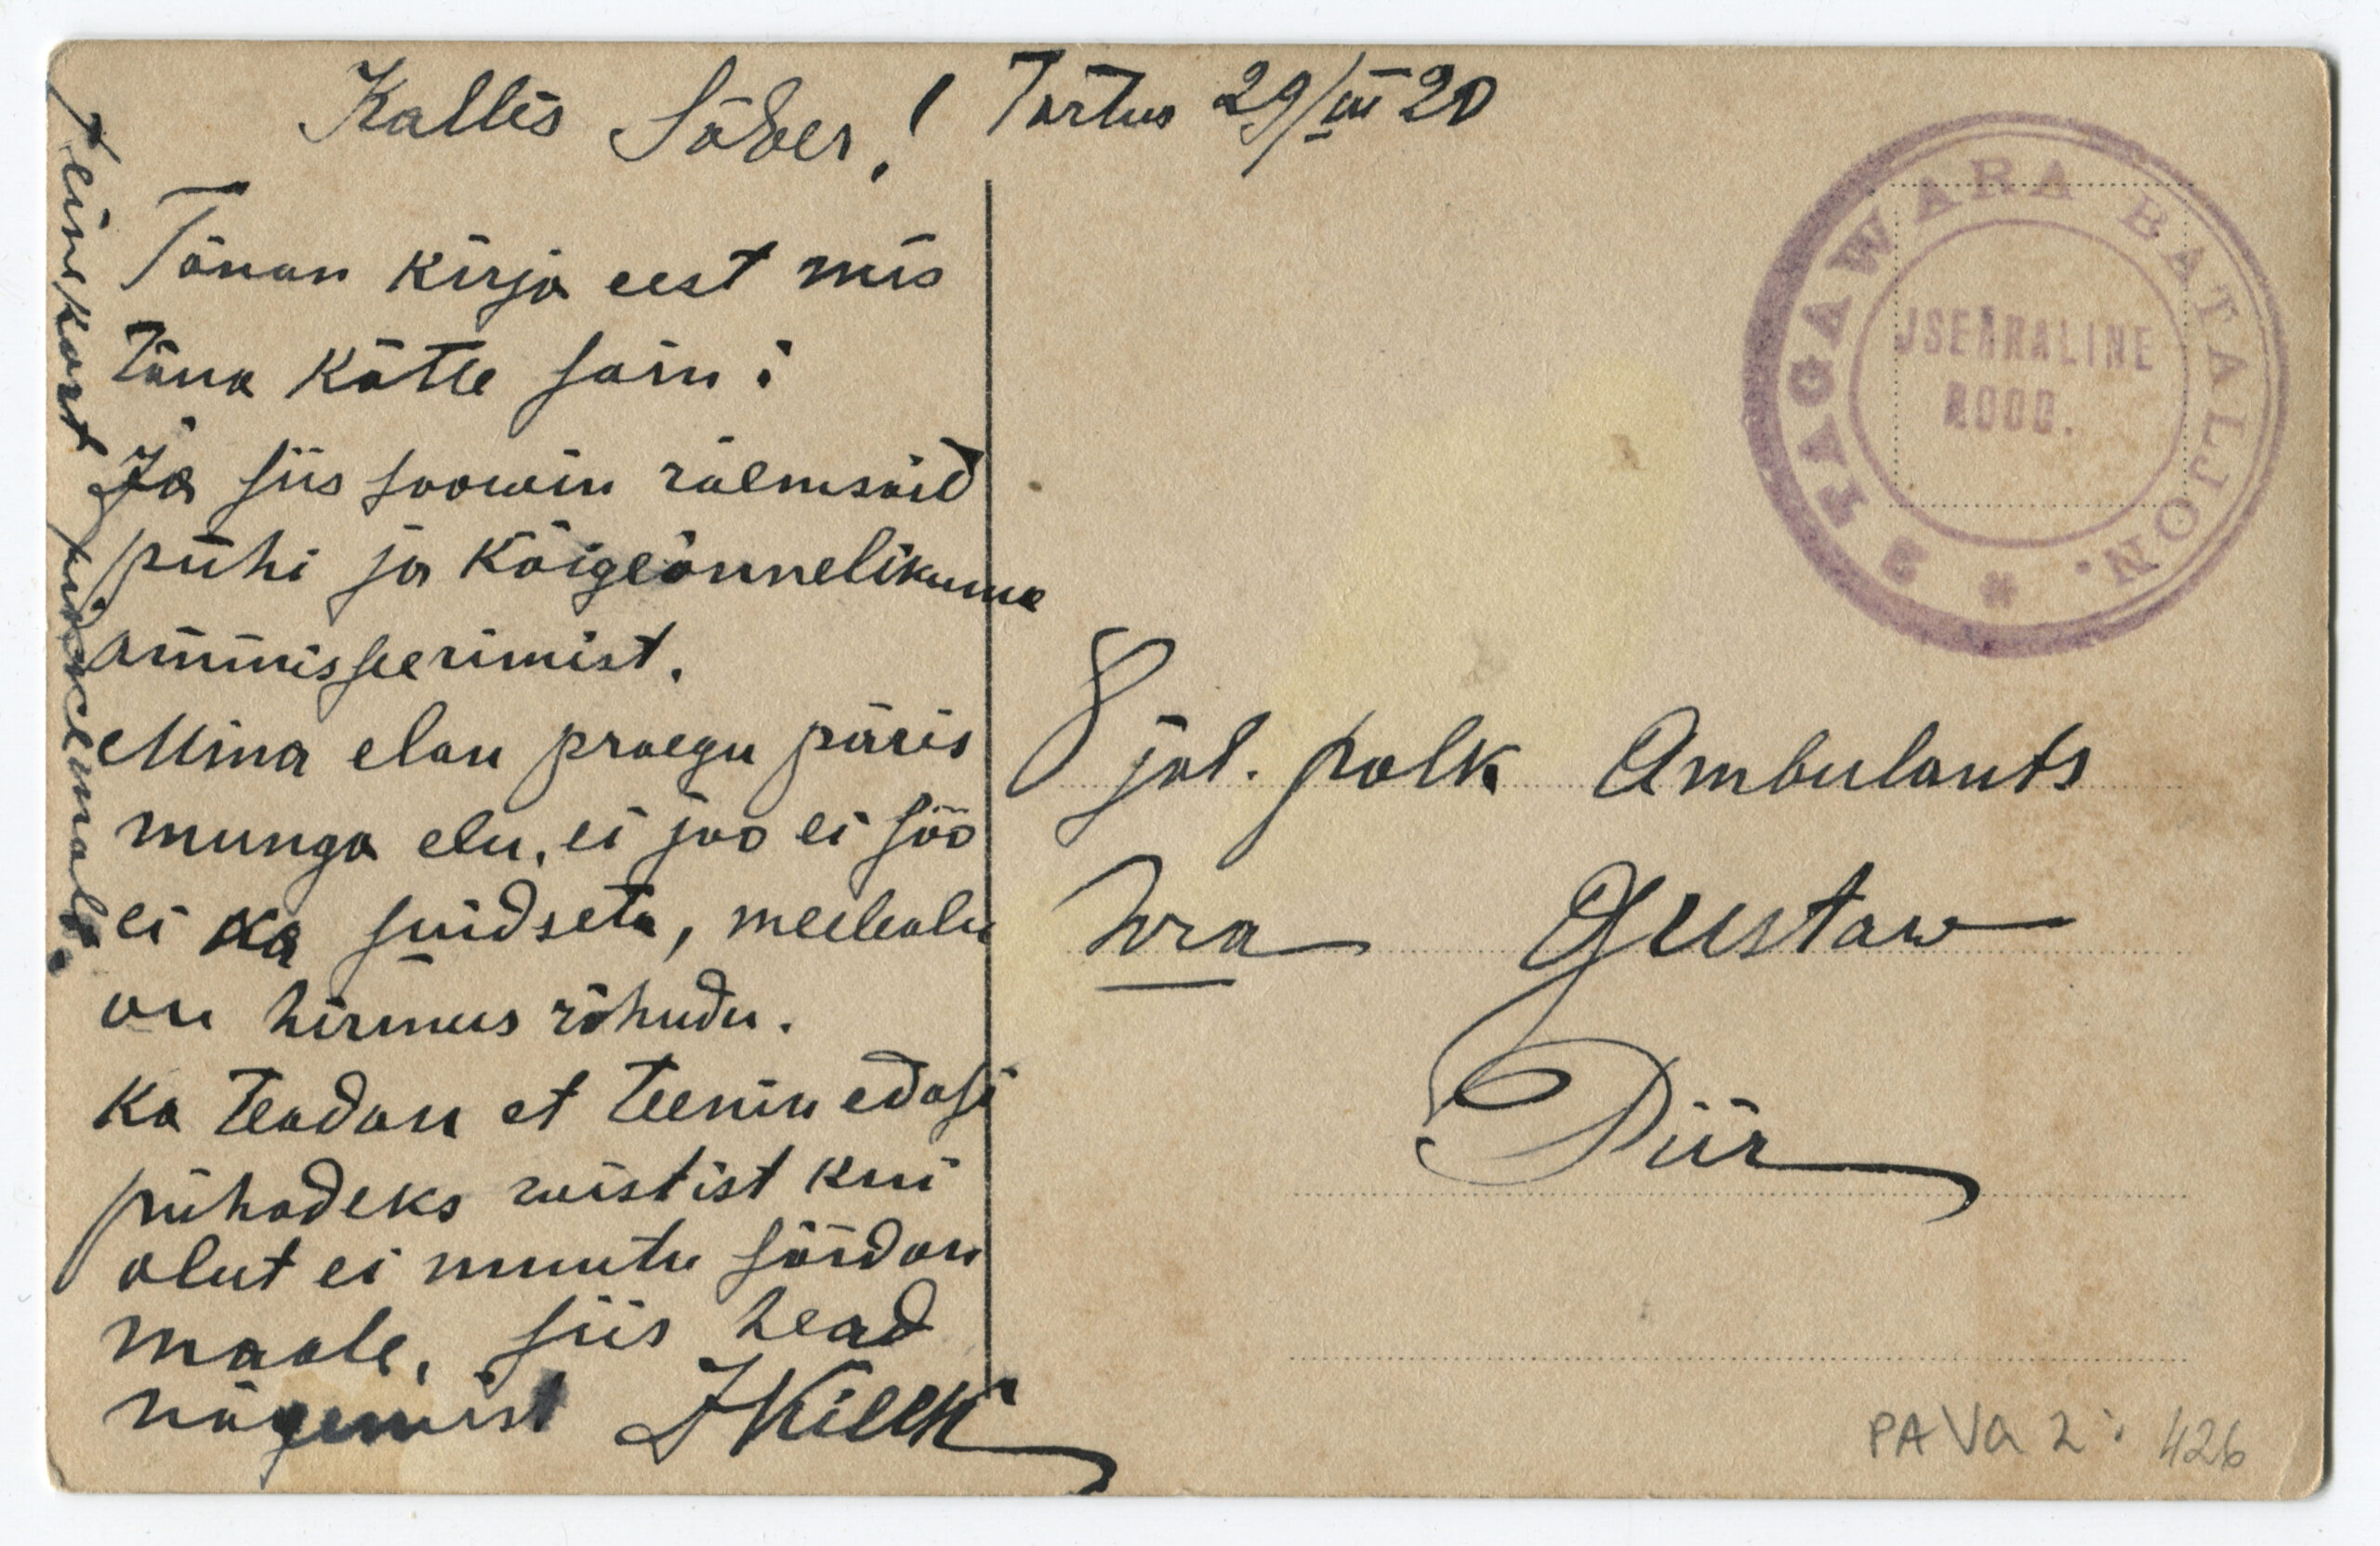 Kallis Sõber! Tartus 29/III 20
Tänan kirja eest mis
täna kätte sain:
Ja siis soowin rõemsaid
pühi ja kõigeõnnelikuma
ammisseerimist.
Mina elan praegu päris
munga elu, ei joo ei söö
ei ka suidseta, meeleolu
on hirmus rõhudu.
ka teadan et teenin edasi
pühadeks wistist kui
olut ei muutu sõidan
maale, siis head
nägemist JKillk
Teine kord pikkemalt.
E TAGAWARA BATALJON.
ISEÄRALINE
ROOD.
8 jal. polk Ambulants
hra Gustaw
Piir
PA Va 2: 426